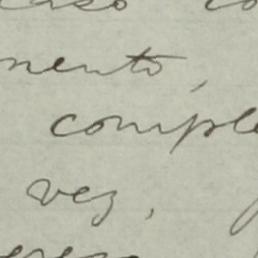 caso co
mento,
comple
vez,